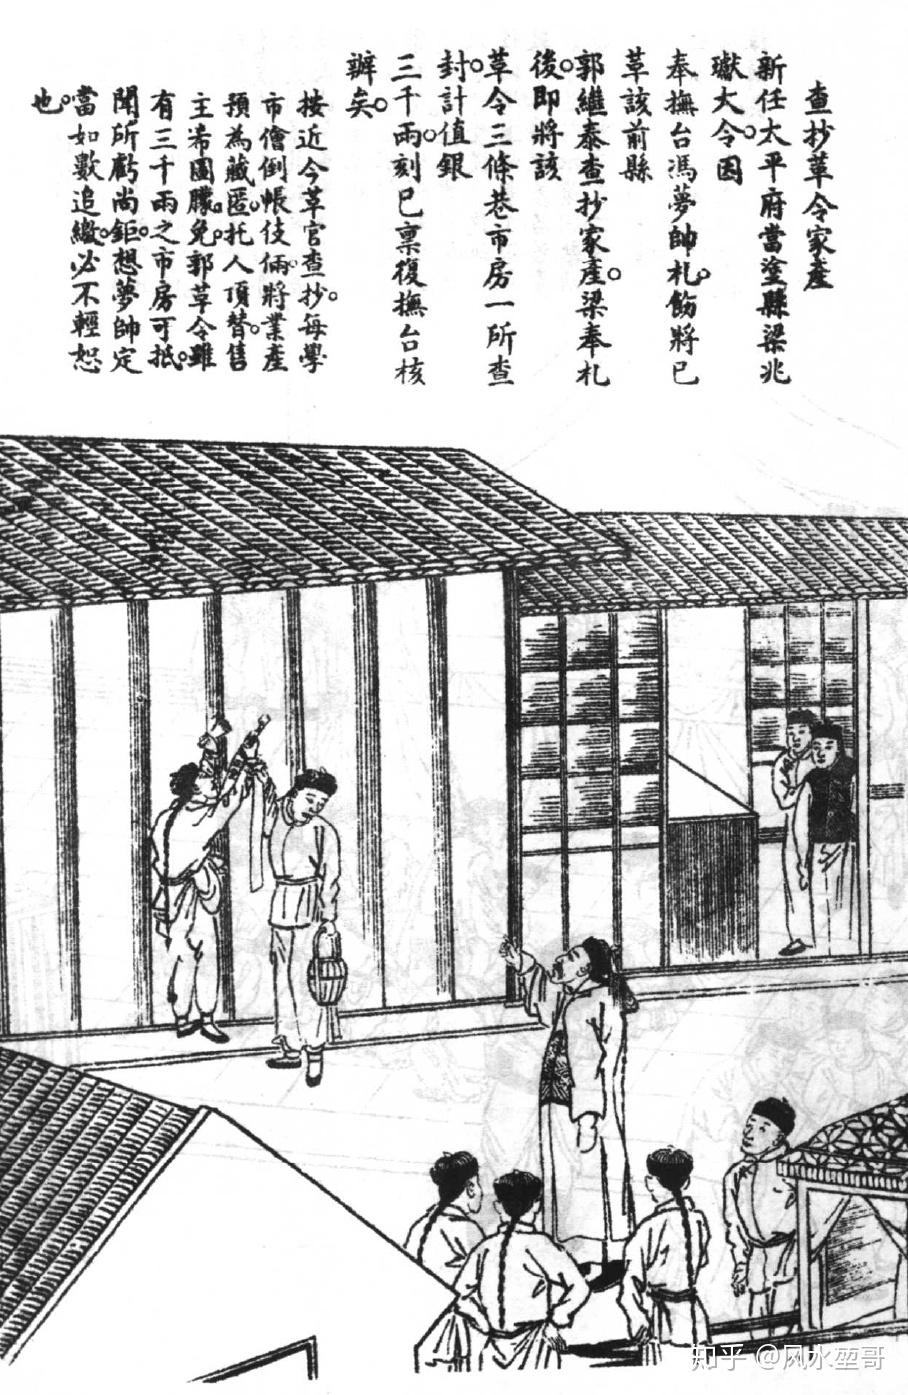 查抄革令家產
新任太平府當塗縣梁兆
瓛大令。因
奉撫台馮夢帥札。飭將已
革該前縣
郭繼泰查抄家產。梁奉札
後。即將該
革令三條巷市房一所查
封。計值銀
三千兩。刻已稟復撫台核
辦矣。
按近今革官查抄。每學
市儈倒帳伎倆。將業產
預為藏匿。托人頂替。售
主希圖朦免。郭革令雖
有三千兩之市房可抵。
聞所虧尚鉅。想夢帥定
當如數追繳。必不輕恕
也。
知乎 @风水堃哥